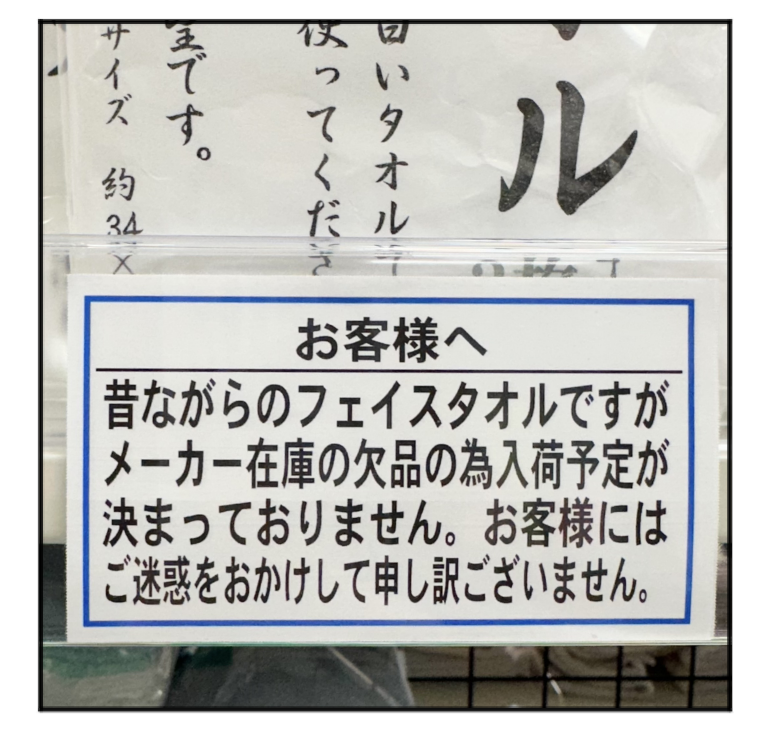 ル
白いタオルで
使ってくださ
全です。
サイズ 約34×
お客様へ
昔ながらのフェイスタオルですが
メーカー在庫の欠品の為入荷予定が
決まっておりません。お客様には
ご迷惑をおかけして申し訳ございません。